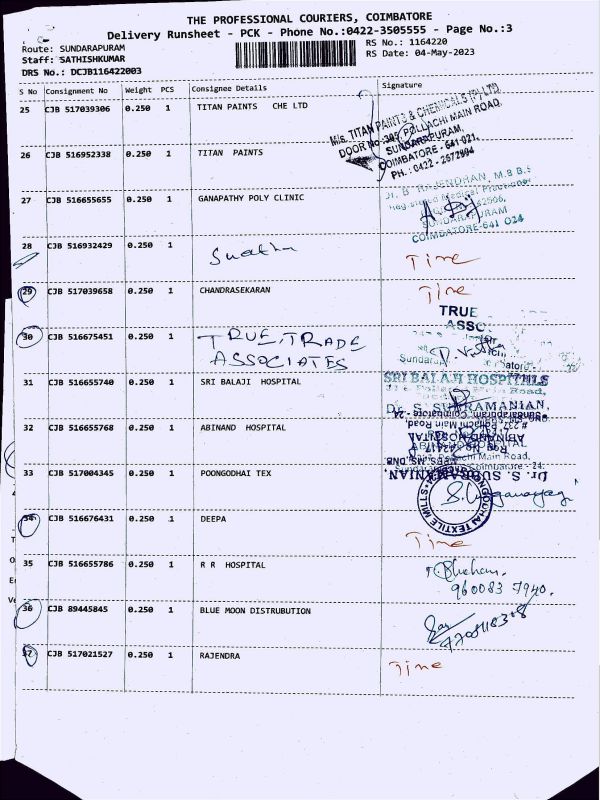 THE PROFESSIONAL COURIERS, COIMBATORE
Delivery Runsheet - PCK - Phone No.:0422-3505555 - Page No.:3
Route: SUNDARAPURAM
RS No.: 1164220
Staff: SATHISHKUMAR
RS Date: 04-May-2023
DRS No.: DCJB116422003
S No Consignment No Weight PCS Consignee Details Signature
25 CJB 517039306 0.250 1 TITAN PAINTS CHE LTD
M/s. TITAN PAINTS & CHEMICALS (P) LTD.
DOOR No. 395, POLLACHI MAIN ROAD,
SUNDARAPURAM,
COIMBATORE - 641 021.
PH.: 0422 - 2672994
26 CJB 516952338 0.250 1 TITAN PAINTS
27 CJB 516655655 0.250 1 GANAPATHY POLY CLINIC
RAJENDRAN, M.B.B.S
SUNDARAPURAM
COIMBATORE-641 024
28 CJB 516932429 0.250 1
Time
29 CJB 517039658 0.250 1 CHANDRASEKARAN Time
30 CJB 516675451 0.250 1 TRUE TRADE
ASSOCIATES
TRUE
ASSC
31 CJB 516655740 0.250 1 SRI BALAJI HOSPITAL
SRI BALAJI HOSPITALS
32 CJB 516655768 0.250 1 ABINAND HOSPITAL
ABINAND HOSPITAL
33 CJB 517004345 0.250 1 POONGODHAI TEX
Dr. S. SUBRAMANIAN,
POONGODHAI TEXTILE MILLS
34 CJB 516676431 0.250 1 DEEPA
Time
35 CJB 516655786 0.250 1 R R HOSPITAL
960083 7940.
36 CJB 89445845 0.250 1 BLUE MOON DISTRUBUTION
37 CJB 517021527 0.250 1 RAJENDRA Time